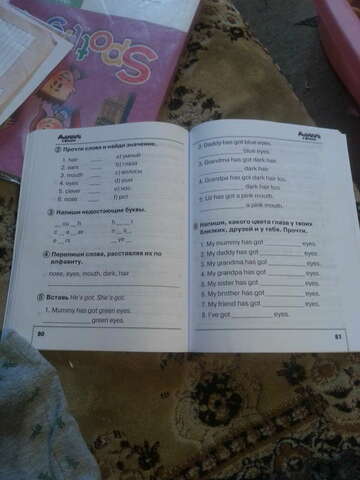 Spot
② Прочти слова и найди значение.
1. hair ____ a) умный
2. ears ____ b) глаза
3. mouth ____ c) волосы
4. eyes ____ d) уши
5. clever ____ e) нос
6. nose ____ f) рот
③ Напиши недостающие буквы.
④ Перепиши слова, расставляя их по алфавиту.
nose, eyes, mouth, dark, hair
⑤ Вставь He's got, She's got.
1. Mummy has got green eyes.
____ green eyes.
80
2. Daddy has got blue eyes.
____ blue eyes.
3. Grandma has got dark hair.
____ dark hair.
4. Grandpa has got dark hair too.
____ dark hair too.
5. Liz has got a pink mouth.
____ a pink mouth.
Напиши, какого цвета глаза у твоих
близких, друзей и у тебя. Прочти.
1. My mummy has got ____ eyes.
2. My daddy has got ____ eyes.
3. My grandma has got ____ eyes.
4. My grandpa has got ____ eyes.
5. My sister has got ____ eyes.
6. My brother has got ____ eyes.
7. My friend has got ____ eyes.
8. I've got ____ eyes.
81